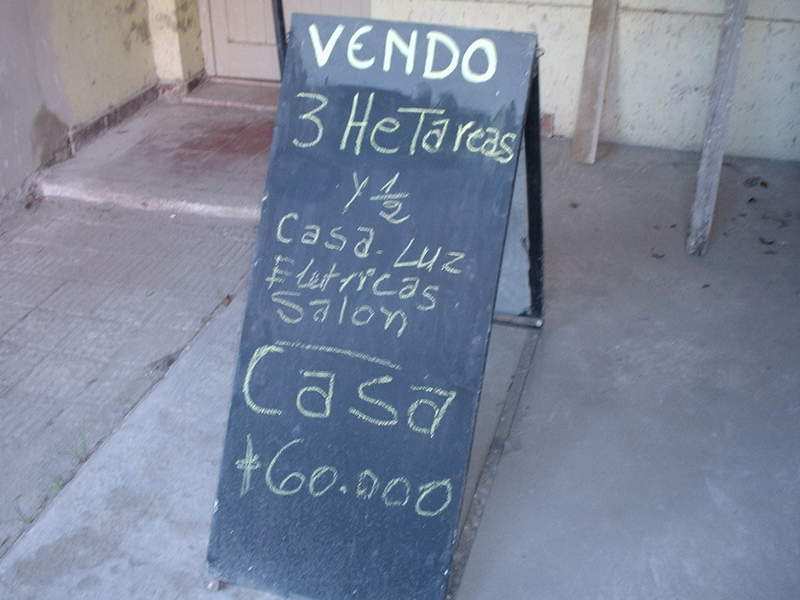 VENDO
3 HeTareas
y 1/2
Casa. Luz
Eletricas
Salon
Casa
$60.000